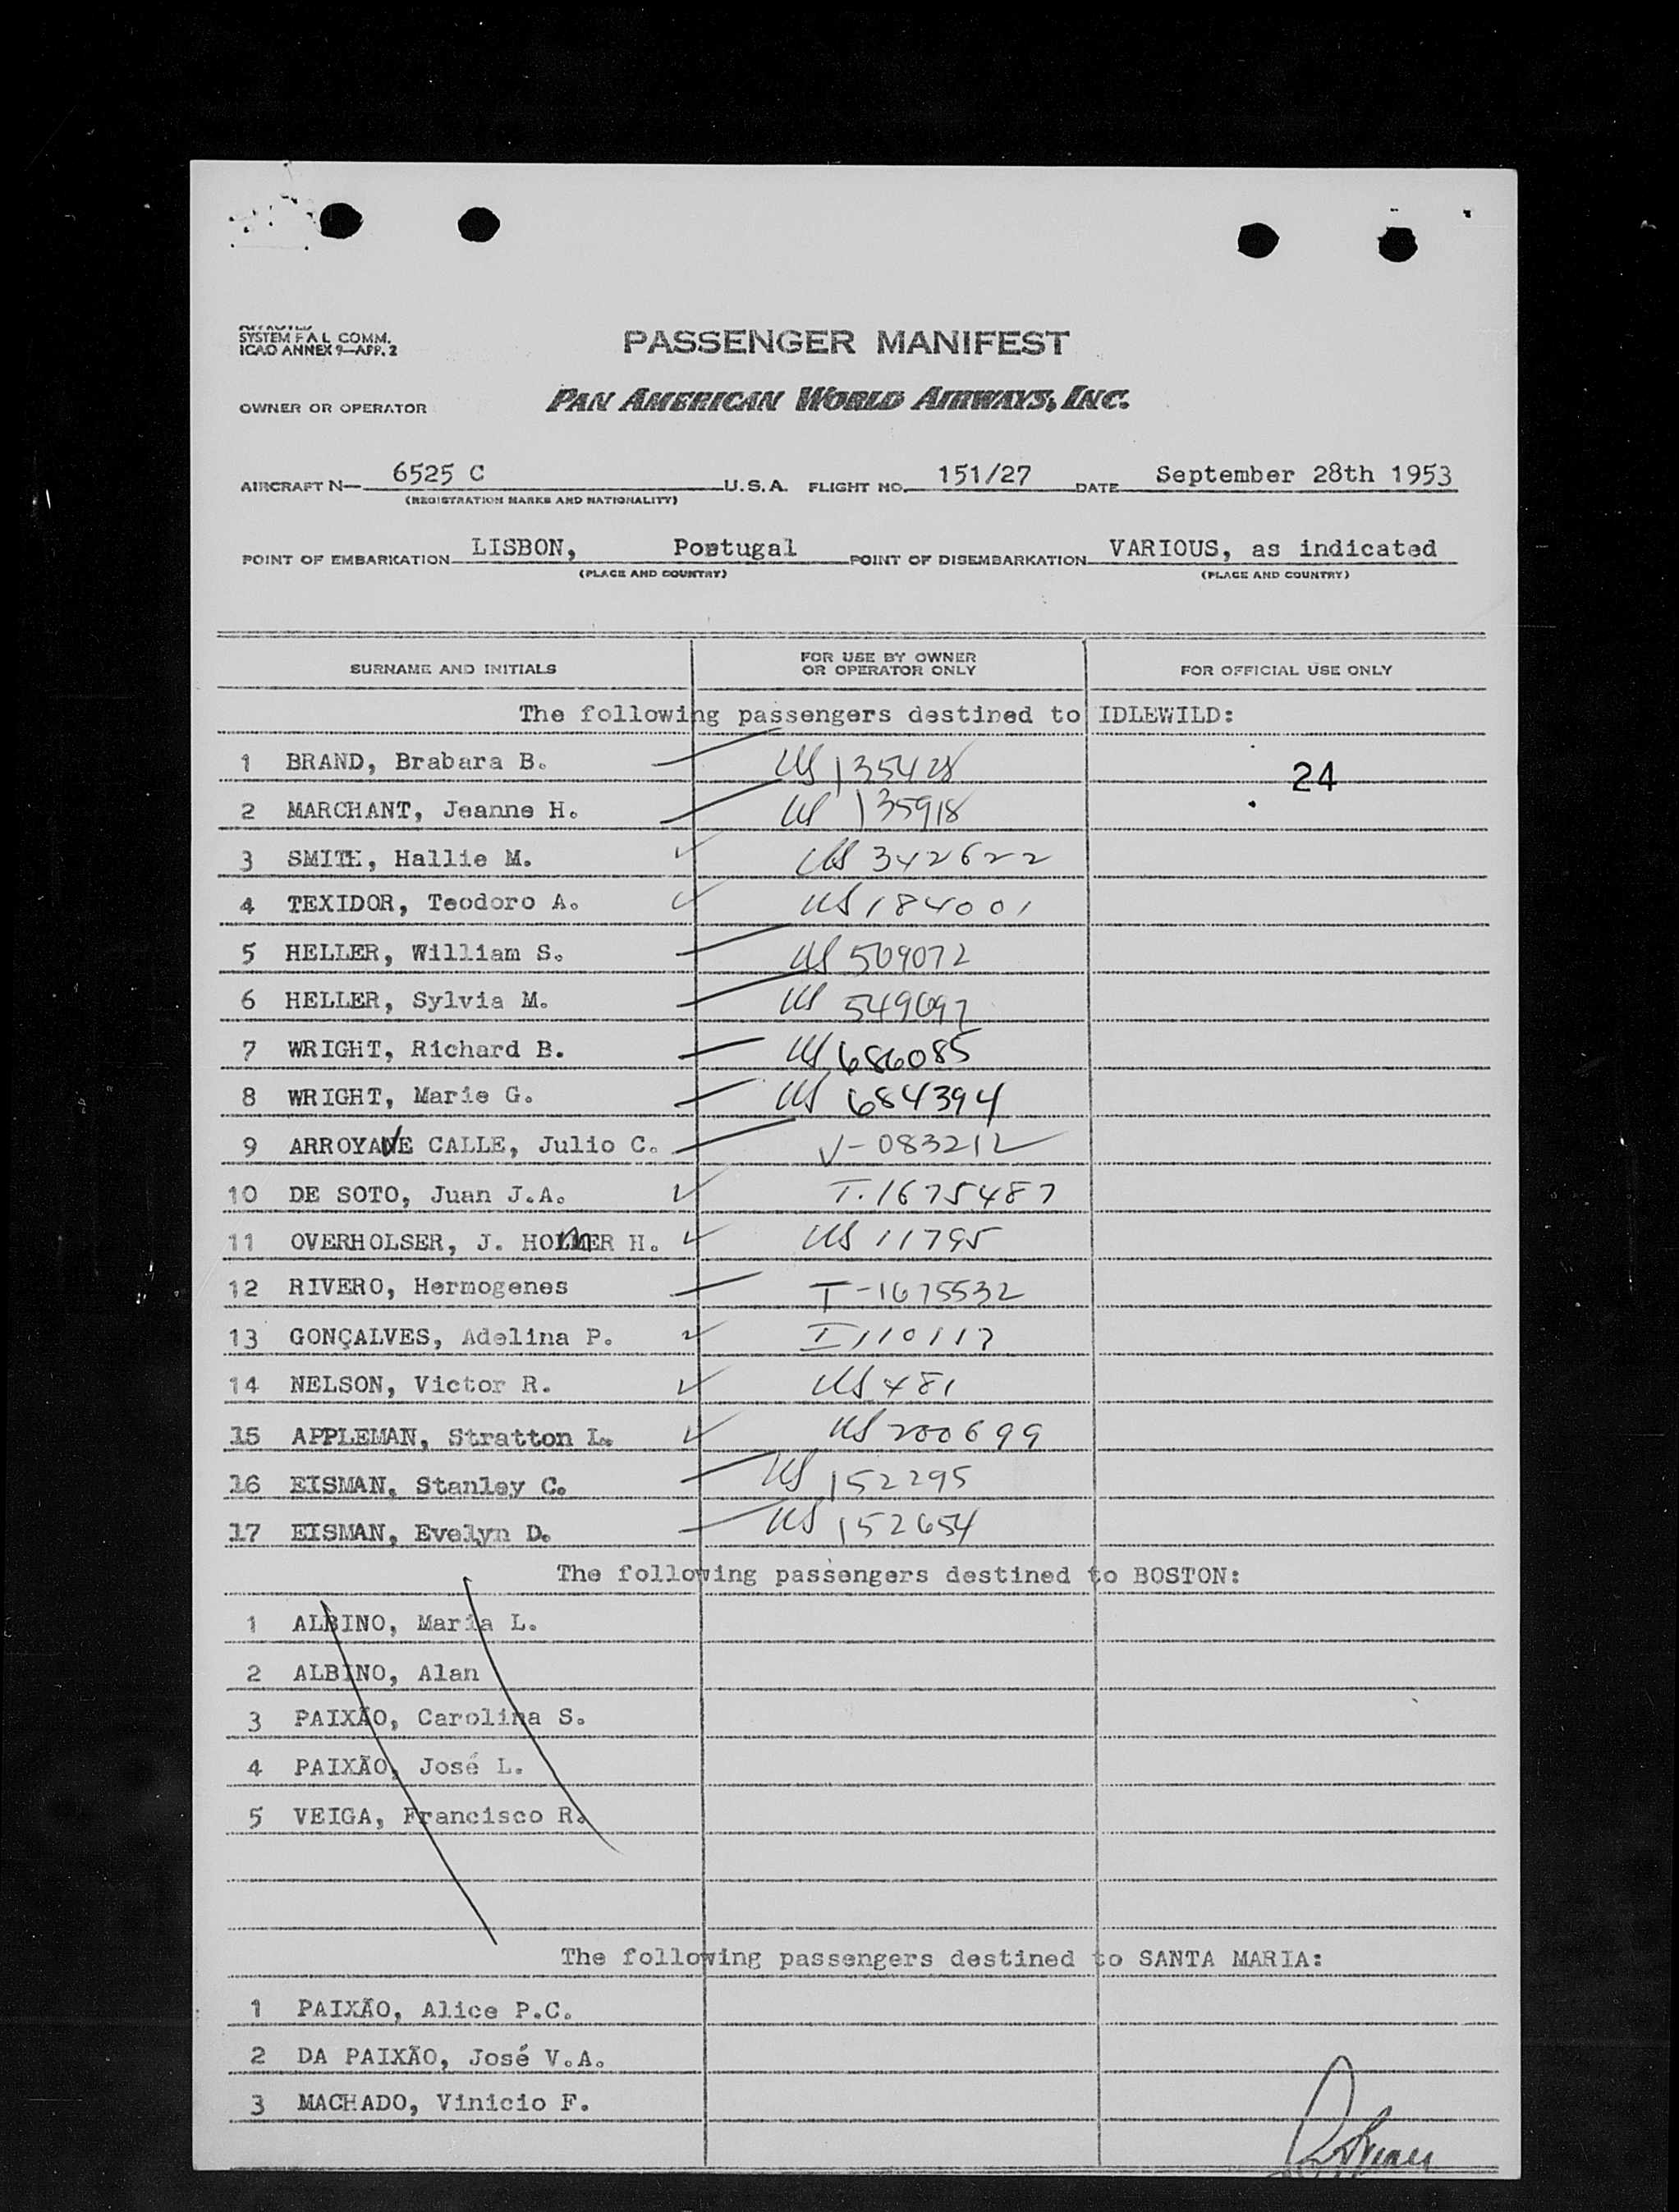 APPROVED
SYSTEM F A L COMM.
ICAO ANNEX 9—APP. 2
PASSENGER MANIFEST
OWNER OR OPERATOR PAN AMERICAN WORLD AIRWAYS, INC.
AIRCRAFT N— 6525 C U.S.A. FLIGHT NO. 151/27 DATE September 28th 1953
(REGISTRATION MARKS AND NATIONALITY)
POINT OF EMBARKATION LISBON, Poetugal POINT OF DISEMBARKATION VARIOUS, as indicated
(PLACE AND COUNTRY) (PLACE AND COUNTRY)
SURNAME AND INITIALS FOR USE BY OWNER OR OPERATOR ONLY FOR OFFICIAL USE ONLY
The following passengers destined to IDLEWILD:
1 BRAND, Brabara B. US 135428 24
2 MARCHANT, Jeanne H. US 135918
3 SMITH, Hallie M. US 342622
4 TEXIDOR, Teodoro A. US 184001
5 HELLER, William S. US 569072
6 HELLER, Sylvia M. US
7 WRIGHT, Richard B. US 686085
8 WRIGHT, Marie G. US 684394
9 ARROYAVE CALLE, Julio C. V-083212
10 DE SOTO, Juan J.A. T.1675487
11 OVERHOLSER, J. HOMER H. US 11795
12 RIVERO, Hermogenes T-1675532
13 GONÇALVES, Adelina P. I 110117
14 NELSON, Victor R. US 481
15 APPLEMAN, Stratton L. US 200699
16 EISMAN, Stanley C. US 152295
17 EISMAN, Evelyn D. US 152654
The following passengers destined to BOSTON:
1 ALBINO, Maria L.
2 ALBINO, Alan
3 PAIXÃO, Carolina S.
4 PAIXÃO, José L.
5 VEIGA, Francisco R.
The following passengers destined to SANTA MARIA:
1 PAIXÃO, Alice P.C.
2 DA PAIXÃO, José V.A.
3 MACHADO, Vinicio F.